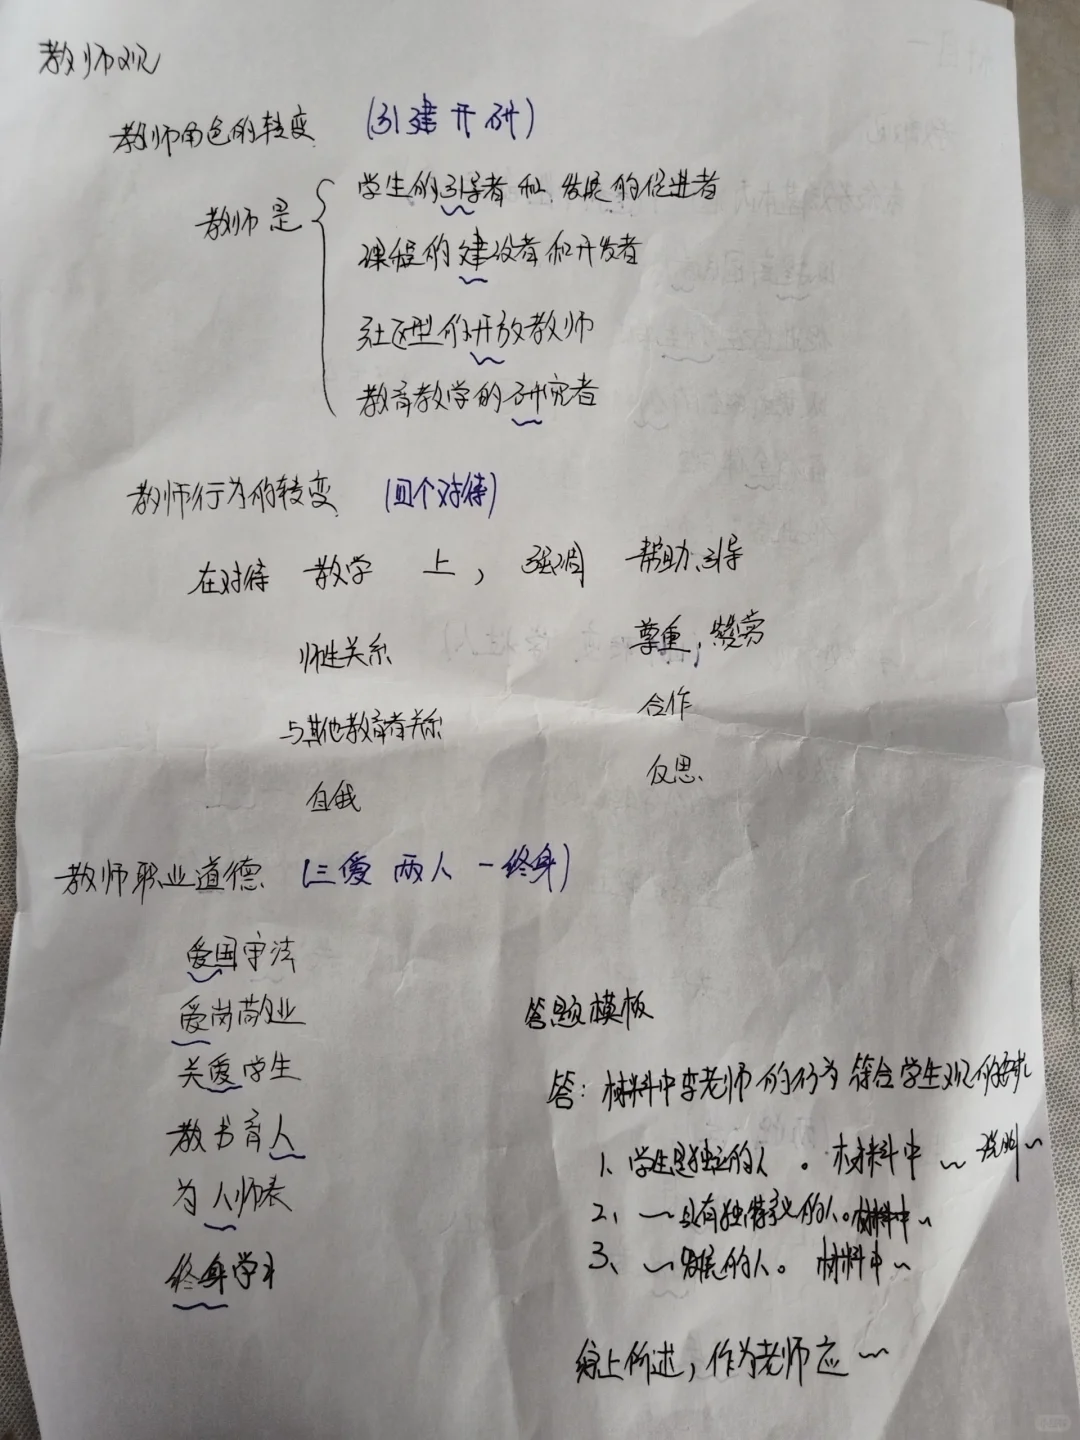 教师观
教师角色的转变 (引建开研)
教师是
学生的引导者和发展的促进者
课程的建设者和开发者
社区型的开放教师
教育教学的研究者
教师行为的转变 (四个对待)
在对待 教学 上, 强调 帮助、引导
师生关系 尊重,赞赏
与其他教育者关系 合作
自我 反思
教师职业道德 (三爱两人一终身)
爱国守法
爱岗敬业
关爱学生
教书育人
为人师表
终身学习
答题模板
答:材料中李老师的行为符合学生观的要求
1、学生是独立的人。材料中~说明~
2、~具有独特意义的人。材料中~
3、~发展的人。材料中~
综上所述,作为老师应~